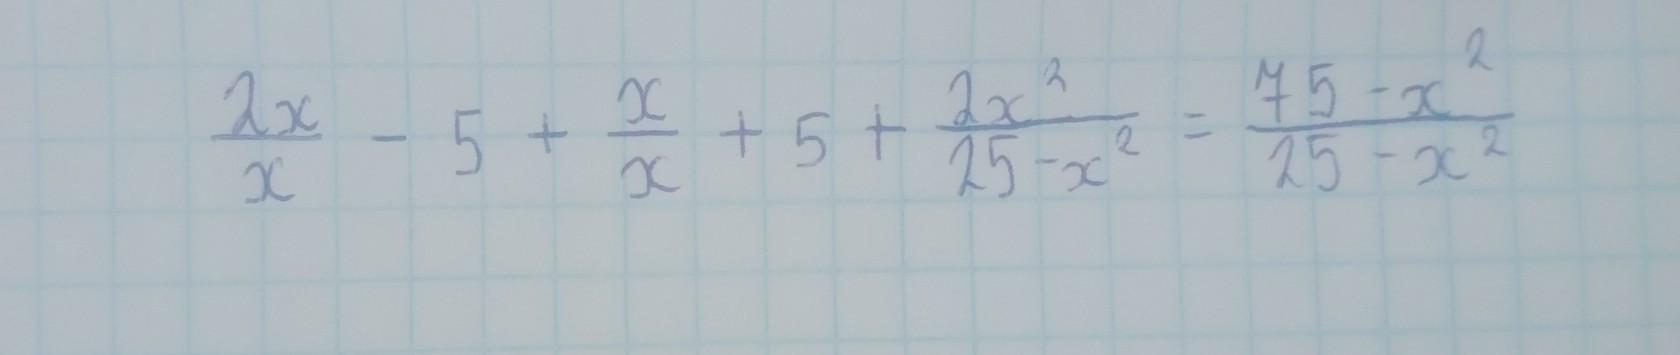 2x/x - 5 + x/x + 5 + 2x²/25-x² = 75-x²/25-x²